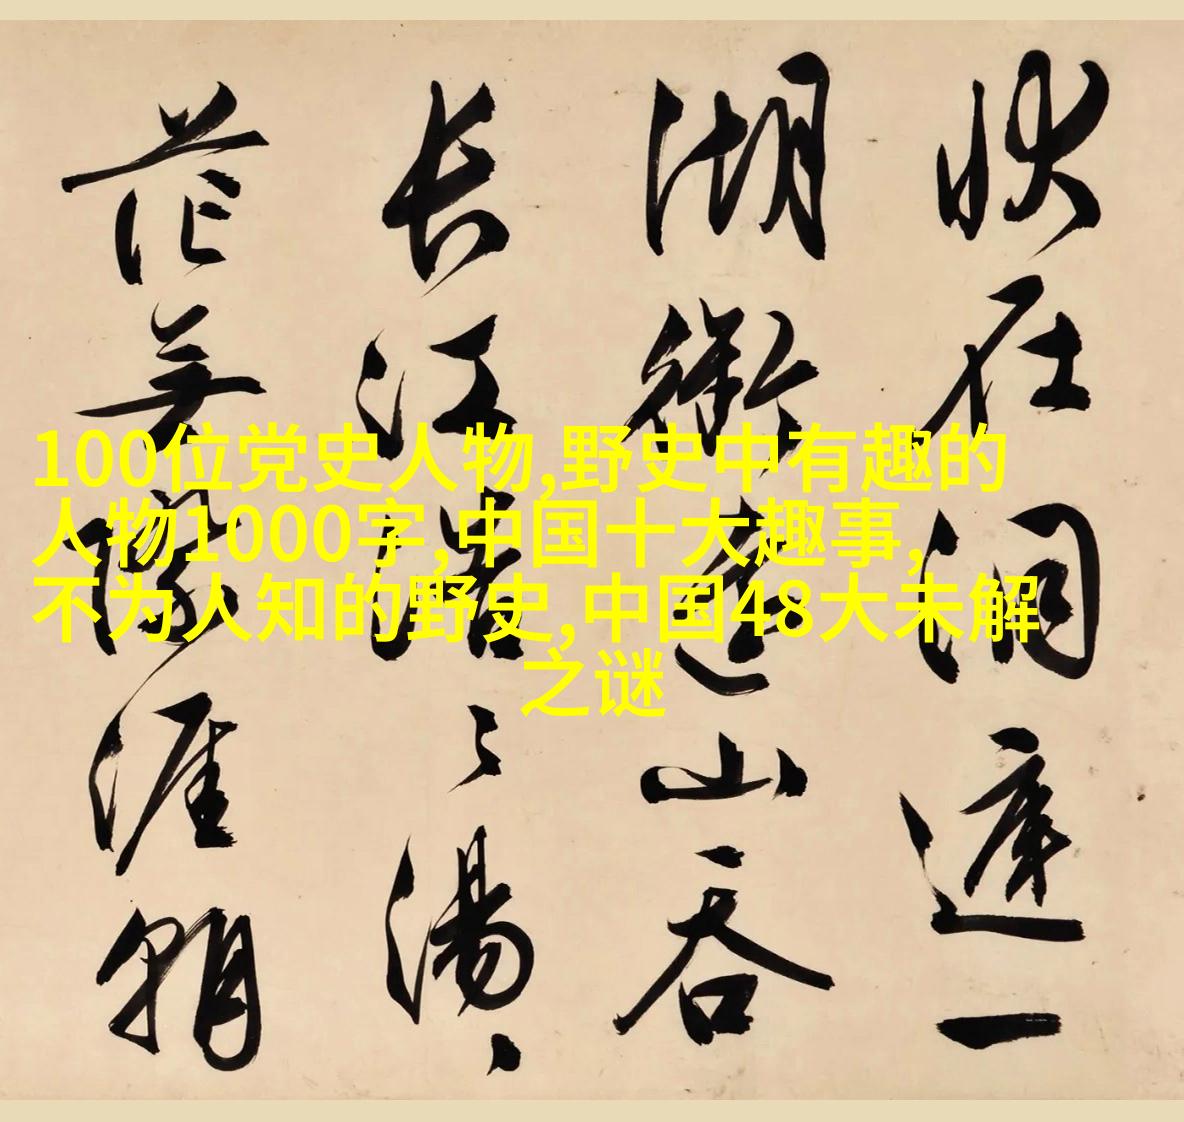 100位党史人物,野史中有趣的
人物1000字,中国十大趣事,
不为人知的野史,中国48大未解
之谜
狀在洞庭一
湖銜遠山吞
长江浩〻湯〻
茫无際涯朝